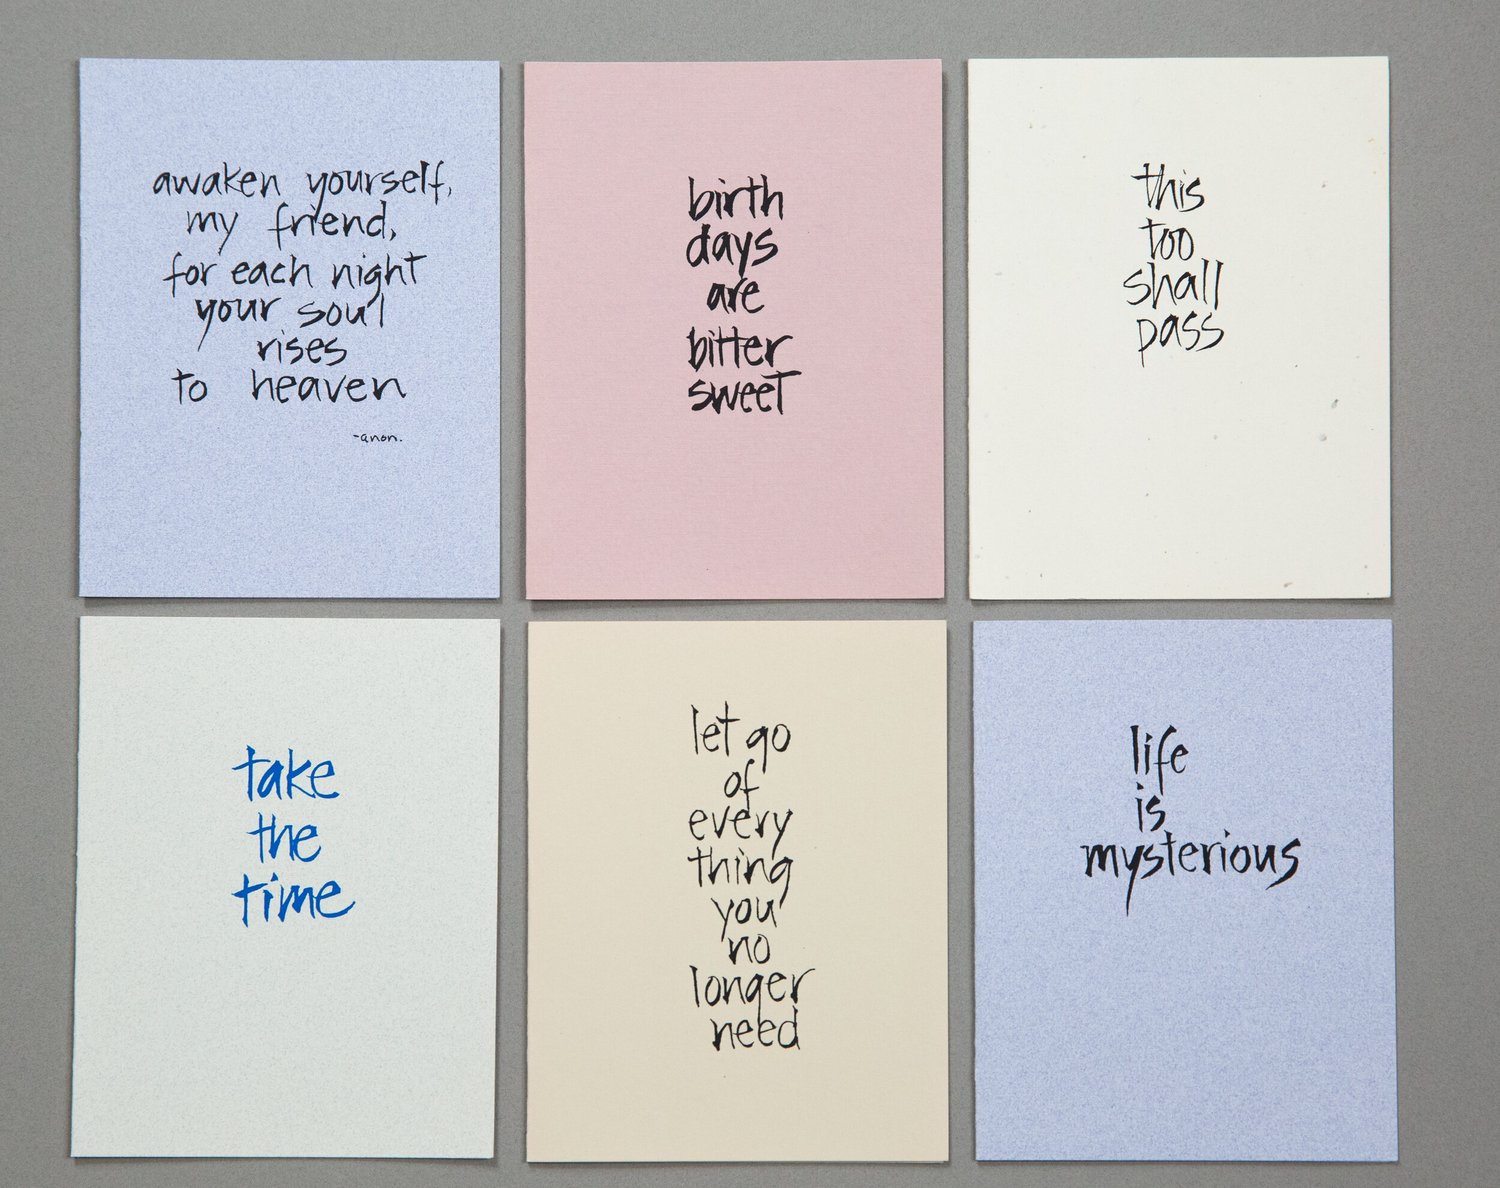 awaken yourself,
my friend,
for each night
your soul
rises
to heaven
-anon.
birth
days
are
bitter
sweet
this
too
shall
pass
take
the
time
let go
of
every
thing
you
no
longer
need
life
is
mysterious